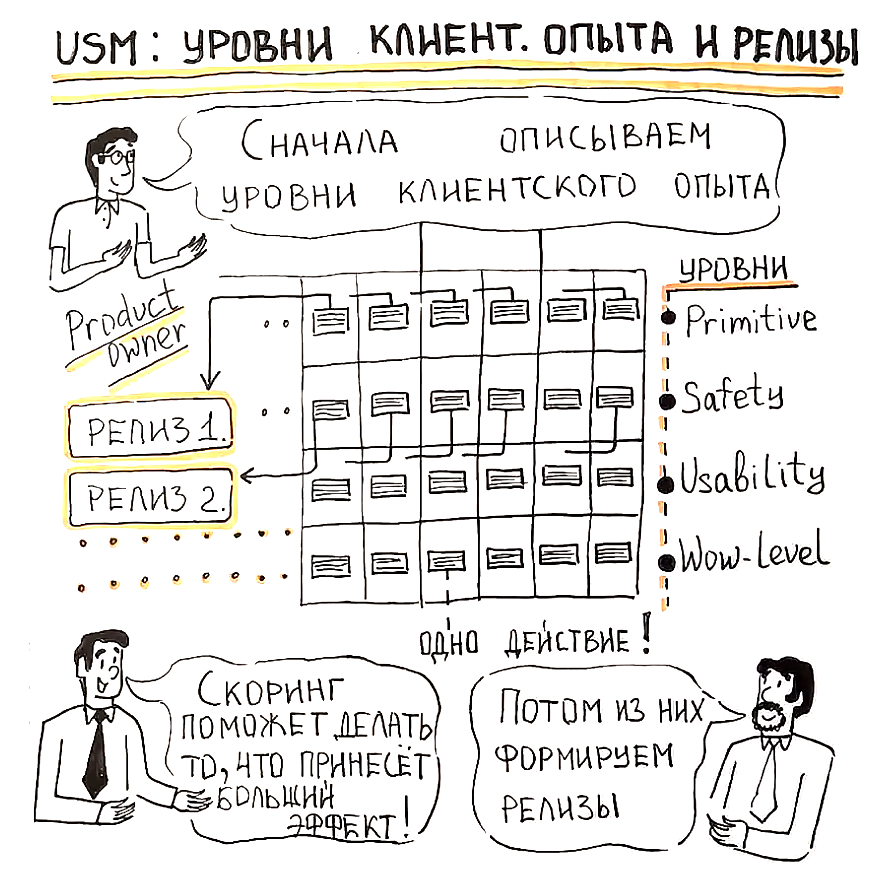 USM: УРОВНИ КЛИЕНТ. ОПЫТА И РЕЛИЗЫ
СНАЧАЛА ОПИСЫВАЕМ
УРОВНИ КЛИЕНТСКОГО ОПЫТА
Product
owner
УРОВНИ
Primitive
Safety
Usability
Wow-level
РЕЛИЗ 1.
РЕЛИЗ 2.
ОДНО ДЕЙСТВИЕ!
СКОРИНГ
ПОМОЖЕТ ДЕЛАТЬ
ТО, ЧТО ПРИНЕСЁТ
БОЛЬШИЙ
ЭФФЕКТ!
ПОТОМ ИЗ НИХ
ФОРМИРУЕМ
РЕЛИЗЫ